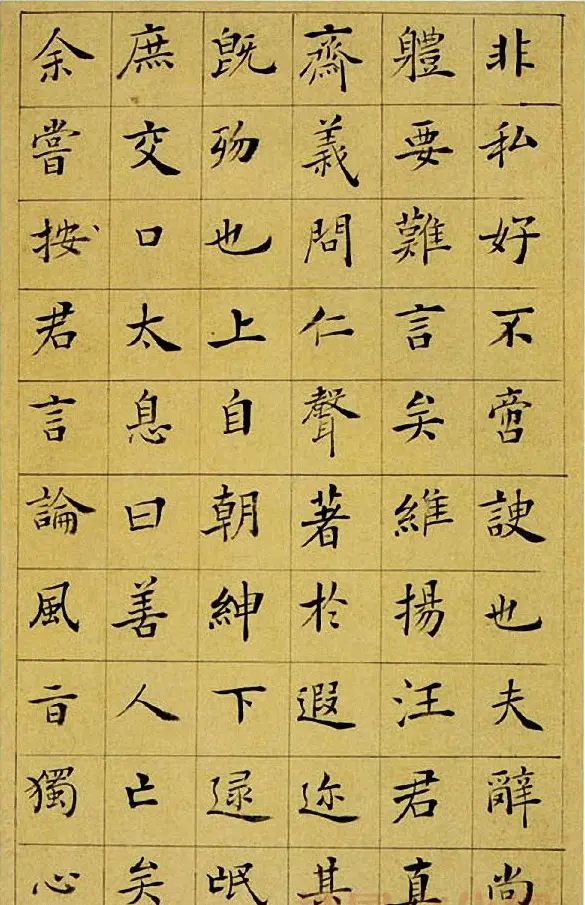 非私好不啻諛也夫辭尚
軆要難言矣維揚汪君直
齋義問仁聲著於遐迩其
既歾也上自朝紳下逮氓
庶交口太息曰善人亡矣
余嘗按君言論風旨獨心